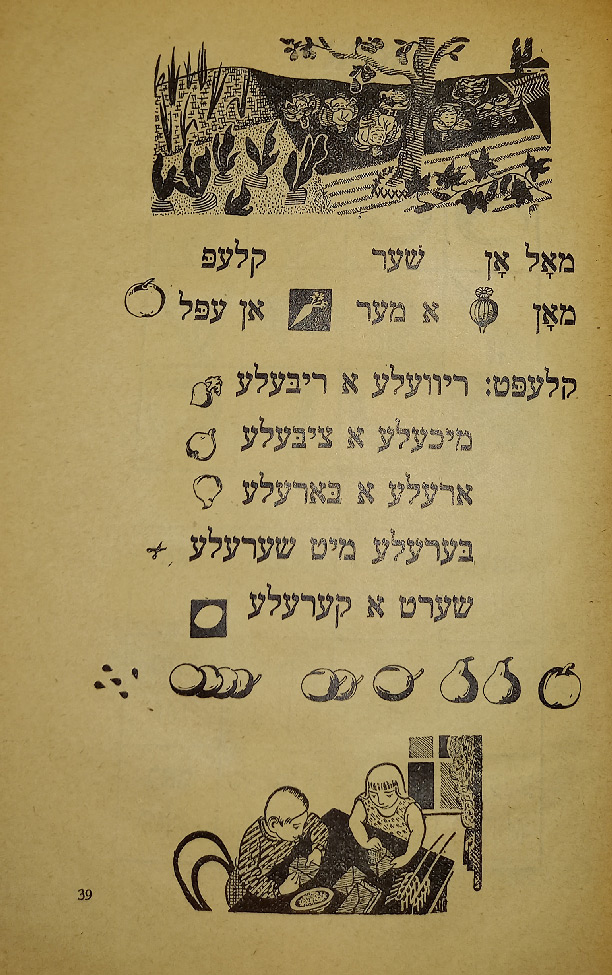 מאָל אָן שער קלעפּ
מאָן א מער און עפּל
קלעפּט: ריוועלע א ריבעלע
מיכעלע א ציבעלע
ארעלע א באַרעלע
בערעלע מיט שערעלע
שערט א קערעלע
39